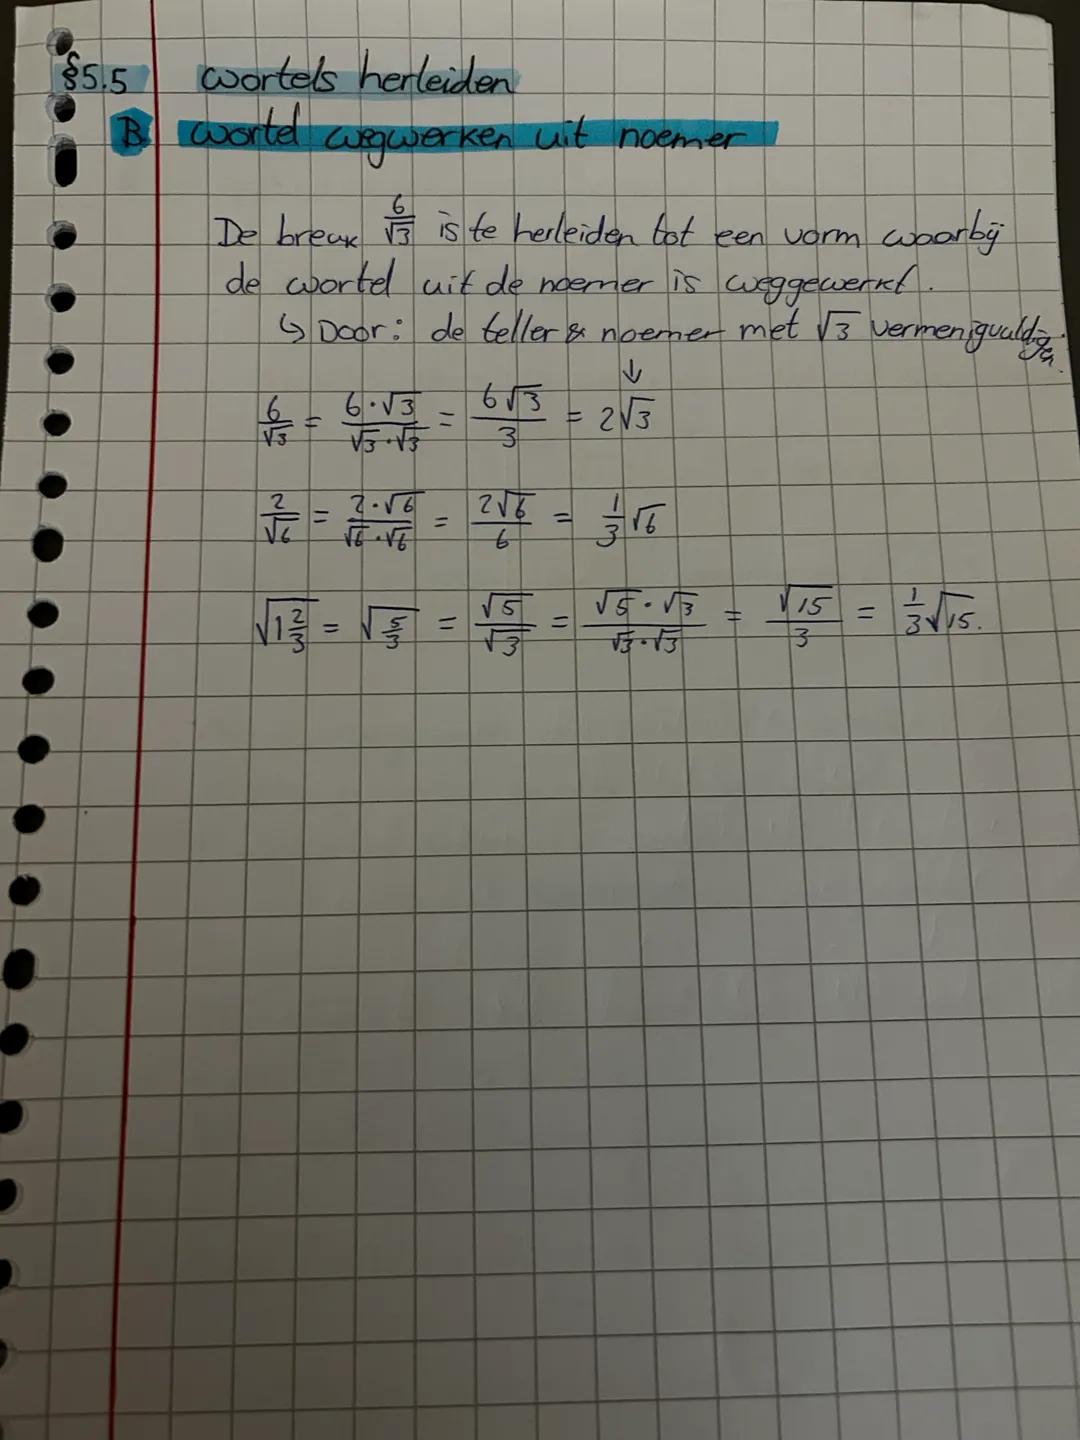 §5.5 wortels herleiden
B wortel wegwerken uit noemer
De breuk 6/√3 is te herleiden tot een vorm waarbij
de wortel uit de noemer is weggewerkt.
↳ Door: de teller & noemer met √3 vermenigvuldigen.
↓
6/√3 = 6·√3/√3·√3 = 6√3/3 = 2√3
2/√6 = 2·√6/√6·√6 = 2√6/6 = 1/3√6
√1 2/3 = √5/3 = √5/√3 = √5·√3/√3·√3 = √15/3 = 1/3√15.